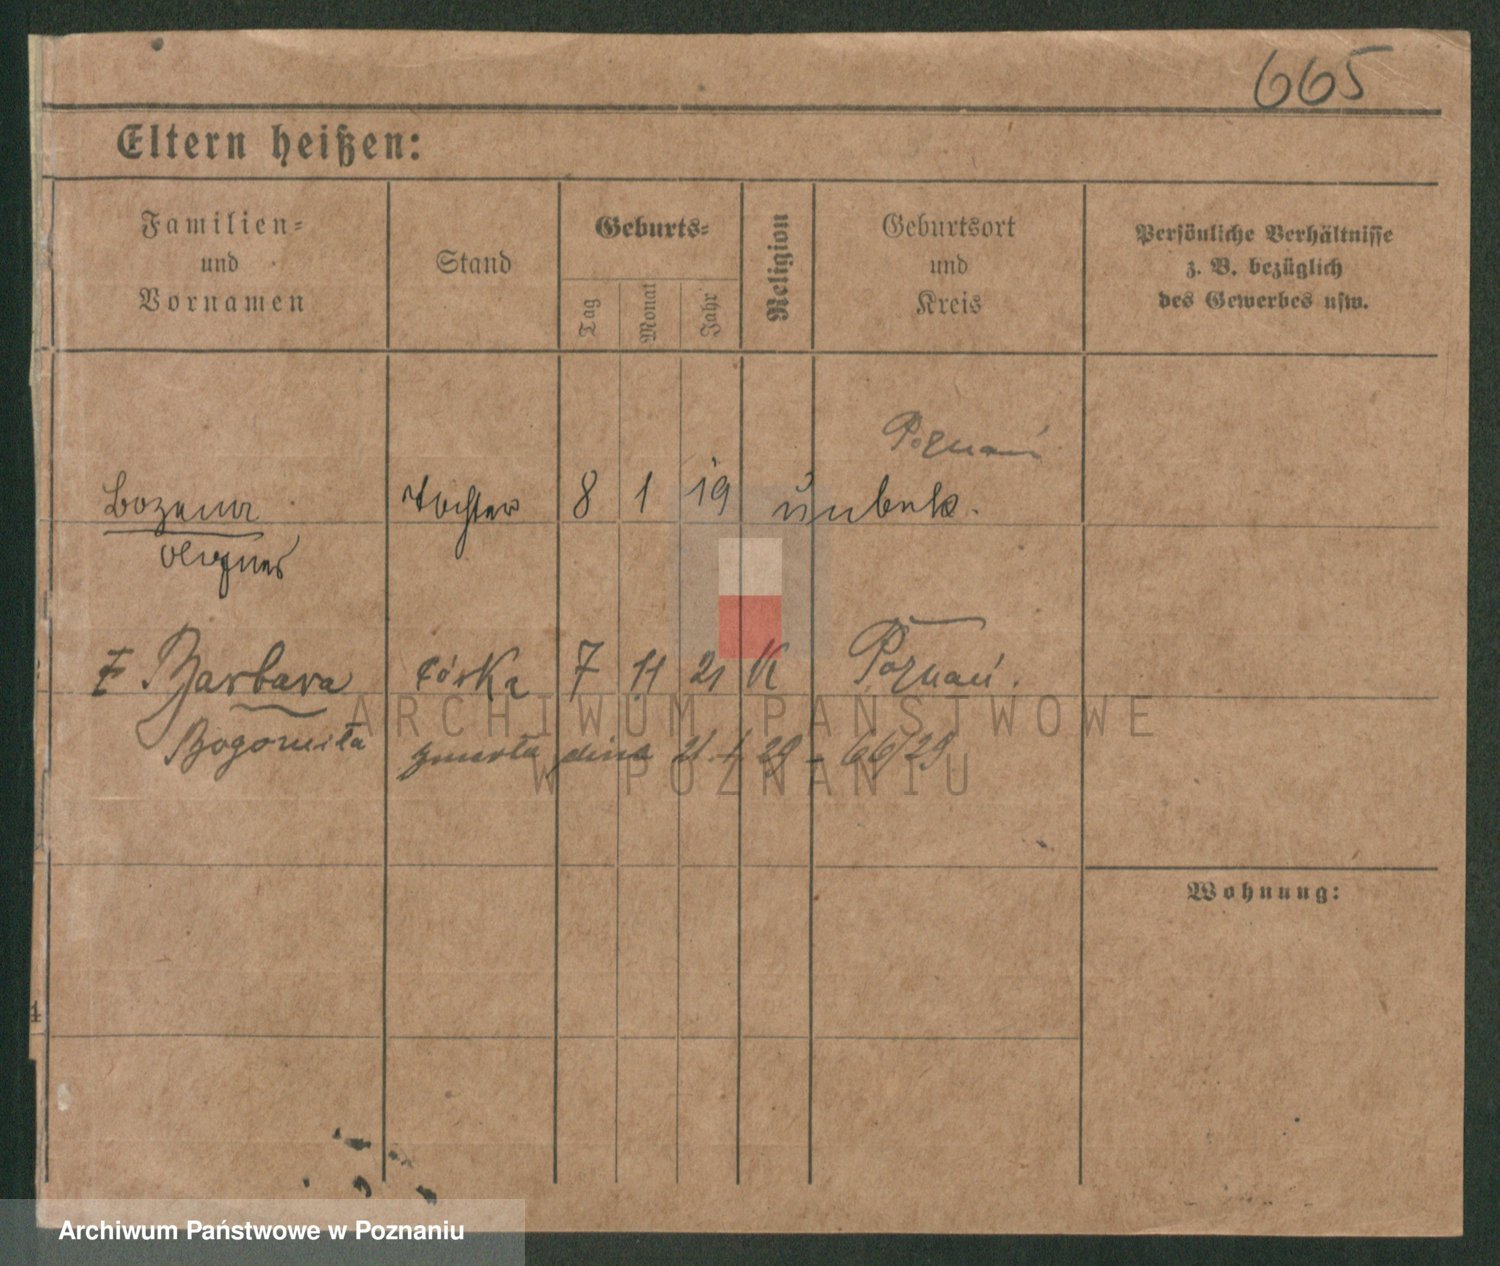 665
Eltern heißen:
Familien-
und
Vornamen
Stand
Geburts-
Tag
Monat
Jahr
Religion
Geburtsort
und
Kreis
Persönliche Verhältnisse
z. B. bezüglich
des Gewerbes usw.
Poznań
Bozena Tochter 8 1 19 unbek.
Agnes
Barbara córka 7 11 21 K Poznań.
Bogomiła zmarła dnia 29 - 66/29
ARCHIWUM PAŃSTWOWE
W POZNANIU
Wohnung:
4
Archiwum Państwowe w Poznaniu